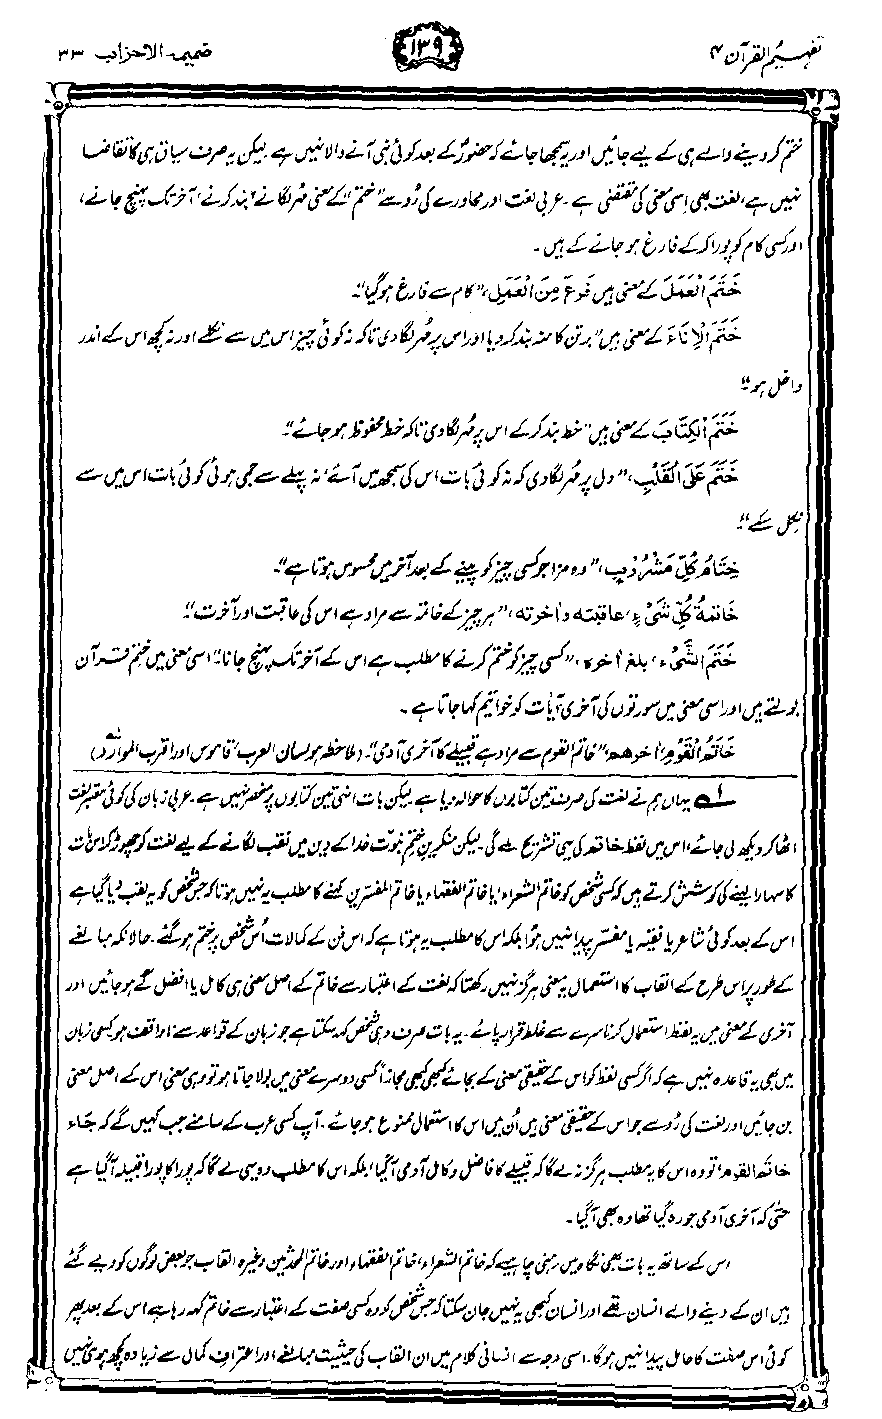 تفہیم القرآن ۴
۱۳۹
ضمیمہ الاحزاب ۳۳
ختم کر دینے والے ہی کے لیے جائیں اور یہ سمجھا جائے کہ حضورؐ کے بعد کوئی نبی آنے والا نہیں ہے۔ لیکن یہ صرف سیاق ہی کا تقاضا
نہیں ہے، لغت بھی اِسی معنی کی مقتضی ہے۔ عربی لغت اور محاورے کی رُو سے ”ختم“ کے معنی مُہر لگانے، بند کرنے، آخر تک پہنچ جانے،
اور کسی کام کو پورا کر کے فارغ ہو جانے کے ہیں۔
خَتَمَ الْعَمَلَ کے معنی ہیں فَرَغَ مِنَ الْعَمَلِ، ”کام سے فارغ ہو گیا“۔
خَتَمَ الْاِنَاءَ کے معنی ہیں ”برتن کا منہ بند کر دیا اور اس پر مُہر لگا دی تاکہ نہ کوئی چیز اس میں سے نکلے اور نہ کچھ اس کے اندر
داخل ہو“۔
خَتَمَ الْکِتَابَ کے معنی ہیں ”خط بند کر کے اس پر مُہر لگا دی تاکہ خط محفوظ ہو جائے“۔
خَتَمَ عَلَی الْقَلْبِ، ”دل پر مُہر لگا دی کہ نہ کوئی بات اس کی سمجھ میں آئے، نہ پہلے سے جمی ہوئی کوئی بات اس میں سے
نکل سکے“۔
خِتَامُ کُلِّ مَشْرُوْبٍ، ”وہ مزا جو کسی چیز کو پینے کے بعد آخر میں محسوس ہوتا ہے“۔
خَاتِمَۃُ کُلِّ شَیْءٍ، عاقبتہ و اٰخرتہ، ”ہر چیز کے خاتمہ سے مراد ہے اس کی عاقبت اور آخرت“۔
خَتَمَ الشَّیْءَ، بلغ اٰخرہ، ”کسی چیز کو ختم کرنے کا مطلب ہے اس کے آخر تک پہنچ جانا“۔ اسی معنی میں ختمِ قرآن
بولتے ہیں اور اسی معنی میں سورتوں کی آخری آیات کو خواتیم کہا جاتا ہے۔
خَاتَمُ الْقَوْمِ، اٰخرھم، ”خاتم القوم سے مراد ہے قبیلے کا آخری آدمی“۔ (ملاحظہ ہو لسان العرب، قاموس اور اقرب الموارد)۱؎
۱؎ یہاں ہم نے لغت کی صرف تین کتابوں کا حوالہ دیا ہے۔ لیکن بات انہی تین کتابوں پر منحصر نہیں ہے۔ عربی زبان کی کوئی معتبر لغت
اٹھا کر دیکھ لی جائے، اس میں لفظ خاتم کی یہی تشریح ملے گی۔ لیکن منکرینِ ختمِ نبوت خدا کے دین میں نقب لگانے کے لیے لغت کو چھوڑ کر اس بات
کا سہارا لینے کی کوشش کرتے ہیں کہ کسی شخص کو خاتم الشعراء، یا خاتم الفقہاء یا خاتم المفسرین کہنے کا مطلب یہ نہیں ہوتا کہ جس شخص کو یہ لقب دیا گیا ہے
اس کے بعد کوئی شاعر یا فقیہ یا مفسر پیدا نہیں ہوا بلکہ اس کا مطلب یہ ہوتا ہے کہ اس فن کے کمالات اُس شخص پر ختم ہو گئے۔ حالانکہ مبالغے
کے طور پر اس طرح کے القاب کا استعمال یہ معنی ہرگز نہیں رکھتا کہ لغت کے اعتبار سے خاتم کے اصل معنی ہی کامل یا افضل کے ہو جائیں اور
آخری کے معنی میں یہ لفظ استعمال کرنا سرے سے غلط قرار پائے۔ یہ بات صرف وہی شخص کہہ سکتا ہے جو زبان کے قواعد سے ناواقف ہو۔ کسی زبان
میں بھی یہ قاعدہ نہیں ہے کہ اگر کسی لفظ کو اس کے حقیقی معنی کے بجائے کبھی کبھی مجازاً کسی دوسرے معنی میں بولا جاتا ہو تو وہی معنی اس کے اصل معنی
بن جائیں اور لغت کی رُو سے جو اس کے حقیقی معنی ہیں اُن میں اس کا استعمال ممنوع ہو جائے۔ آپ کسی عرب کے سامنے جب کہیں گے کہ جَاء
خَاتَمُ القَوم، تو وہ اس کا یہ مطلب ہرگز نہ لے گا کہ قبیلے کا فاضل و کامل آدمی آ گیا، بلکہ اس کا مطلب وہ یہی لے گا کہ پورا کا پورا قبیلہ آ گیا ہے
حتیٰ کہ آخری آدمی جو رہ گیا تھا وہ بھی آ گیا۔
اس کے ساتھ یہ بات بھی نگاہ میں رہنی چاہیے کہ خاتم الشعراء، خاتم الفقہاء اور خاتم المحدثین وغیرہ القاب جو بعض لوگوں کو دیے گئے
ہیں ان کے دینے والے انسان تھے اور انسان کبھی یہ نہیں جان سکتا کہ جس شخص کو وہ کسی صفت کے اعتبار سے خاتم کہہ رہا ہے اس کے بعد پھر
کوئی اس صفت کا حامل پیدا نہیں ہو گا۔ اسی وجہ سے انسانی کلام میں ان القاب کی حیثیت مبالغے اور اعترافِ کمال سے زیادہ کچھ ہو ہی نہیں